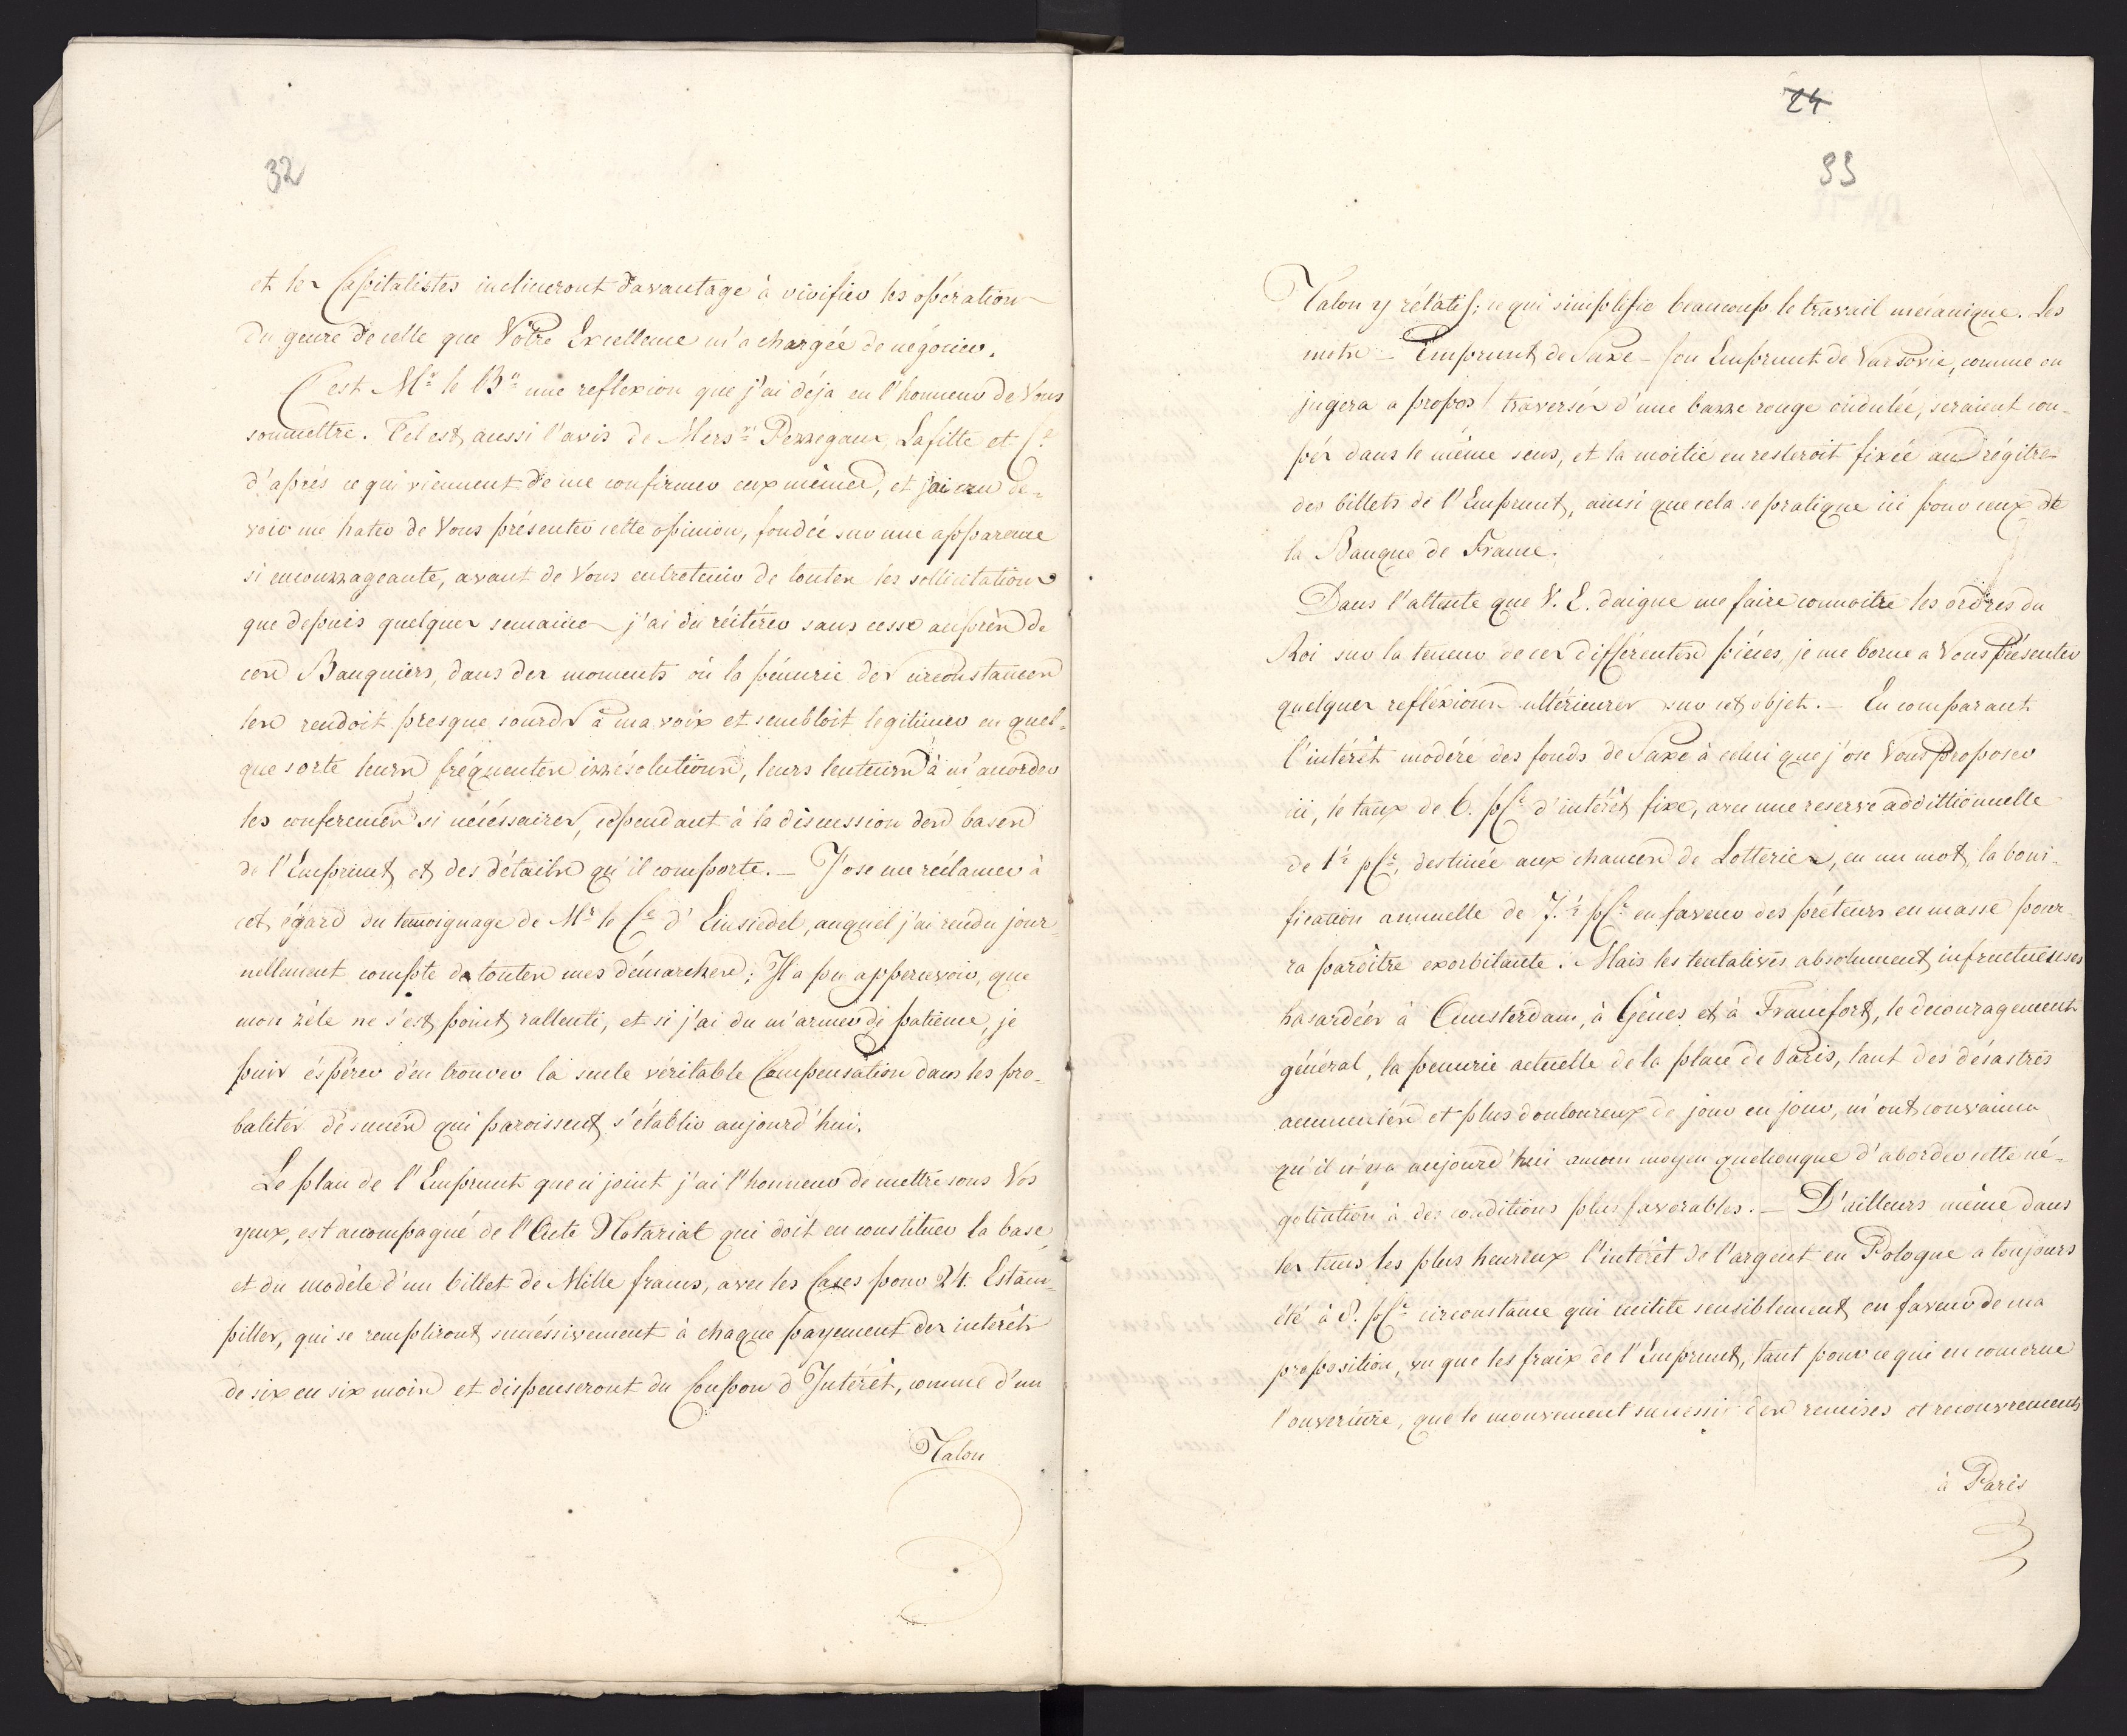 32
et les Capitalistes inclineront davantage à vivifier les opérations
du genre de celle que Votre Excellence m'a chargée de négocier.
C'est Mr. le Bn. une reflexion que j'ai déja eu l'honneur de Vous
soumettre. Tel est aussi l'avis de Merss. Perregaux, Lafitte et Ce.
d'après ce qui viennent de me confirmer eux mêmes, et j'ai cru de-
voir me hater de Vous présenter cette opinion, fondée sur une apparence
si encourrageante, avant de Vous entretenir de toutes les sollicitations
que depuis quelques semaines j'ai dû réitérer sans cesse auprès de
ces Banquiers, dans des moments où la pénurie des circonstances
les rendoit presque sourds à ma voix et sembloit legitimer en quel-
que sorte leurs fréquentes irrésolutions, leurs lenteurs à m'accorder
les conferences si nécéssaires, cependant à la discussion des bases
de l'Emprunt et des détails qu'il comporte. — J'ose me réclamer à
cet égard du temoignage de Mr. le Ce. d'Einsiedel, auquel j'ai rendu jour-
nellement compte de toutes mes démarches; Il a pu appercevoir, que
mon zéle ne s'est point rallenti, et si j'ai du m'armer de patience, je
puis éspérer d'en trouver la seule véritable Compensation dans les pro-
balités de succès qui paroissent s'établir aujourd'hui.
Le plan de l'Emprunt que ci joint j'ai l'honneur de mettre sous Vos
yeux, est accompagné de l'Acte Notarial qui doit en constituer la base
et du modèle d'un billet de Mille francs, avec les Cases pour 24. Estam-
pilles, qui se rempliront succéssivement à chaque payement des intérêts
de six en six mois et dispenseront du Coupon d'Intérêt, comme d'un
Talon
24
33
Talon y rélatif; ce qui simplifie beaucoup le travail mécanique. Les
mots — Emprunt de Saxe — (ou Emprunt de Varsovie, comme on
jugera a propos) traversés d'une barre rouge ondulée, seraient cou-
pés dans le même sens, et la moitié en resteroit fixée au régitre
des billets de l'Emprunt, ainsi que cela se pratique ici pour ceux de
la Banque de France.
Dans l'attente que V. E. daigne me faire connoitre les ordres du
Roi sur la teneur de ces différentes piéces, je me borne a Vous Présenter
quelques refléxions ultérieures sur cet objet. — En comparant
l'intérêt modéré des fonds de Saxe à celui que j'ose Vous proposer
ici, le taux de 6. pCt. d'intérêt fixe, avec une reserve addittionnelle
de 1½ pCt. destinée aux chances de Lotteries, en un mot, la boni-
fication annuelle de 7.½ pCt. en faveur des prêteurs en masse pour-
ra paroitre exorbitante. Mais les tentatives absolument infructueuses
hasardées à Amsterdam, à Gênes et à Francfort, le decouragement
général, la penurie actuelle de la place de Paris, tant des désastres
accumulés et plus douloureux de jour en jour, m'ont convaincu
qu'il n'est aujourd'hui aucun moyen quelconque d'aborder cette né-
gotiation à des conditions plus favorables. — D'ailleurs même dans
les tems les plus heureux l'intérêt de l'argent en Pologne a toujours
été à 8. pCt. circonstance qui milite sensiblement en faveur de ma
proposition, vu que les fraix de l'Emprunt, tant pour ce qui en concerne
l'ouverture, que le mouvement successif des remises et recouvrements
à Paris